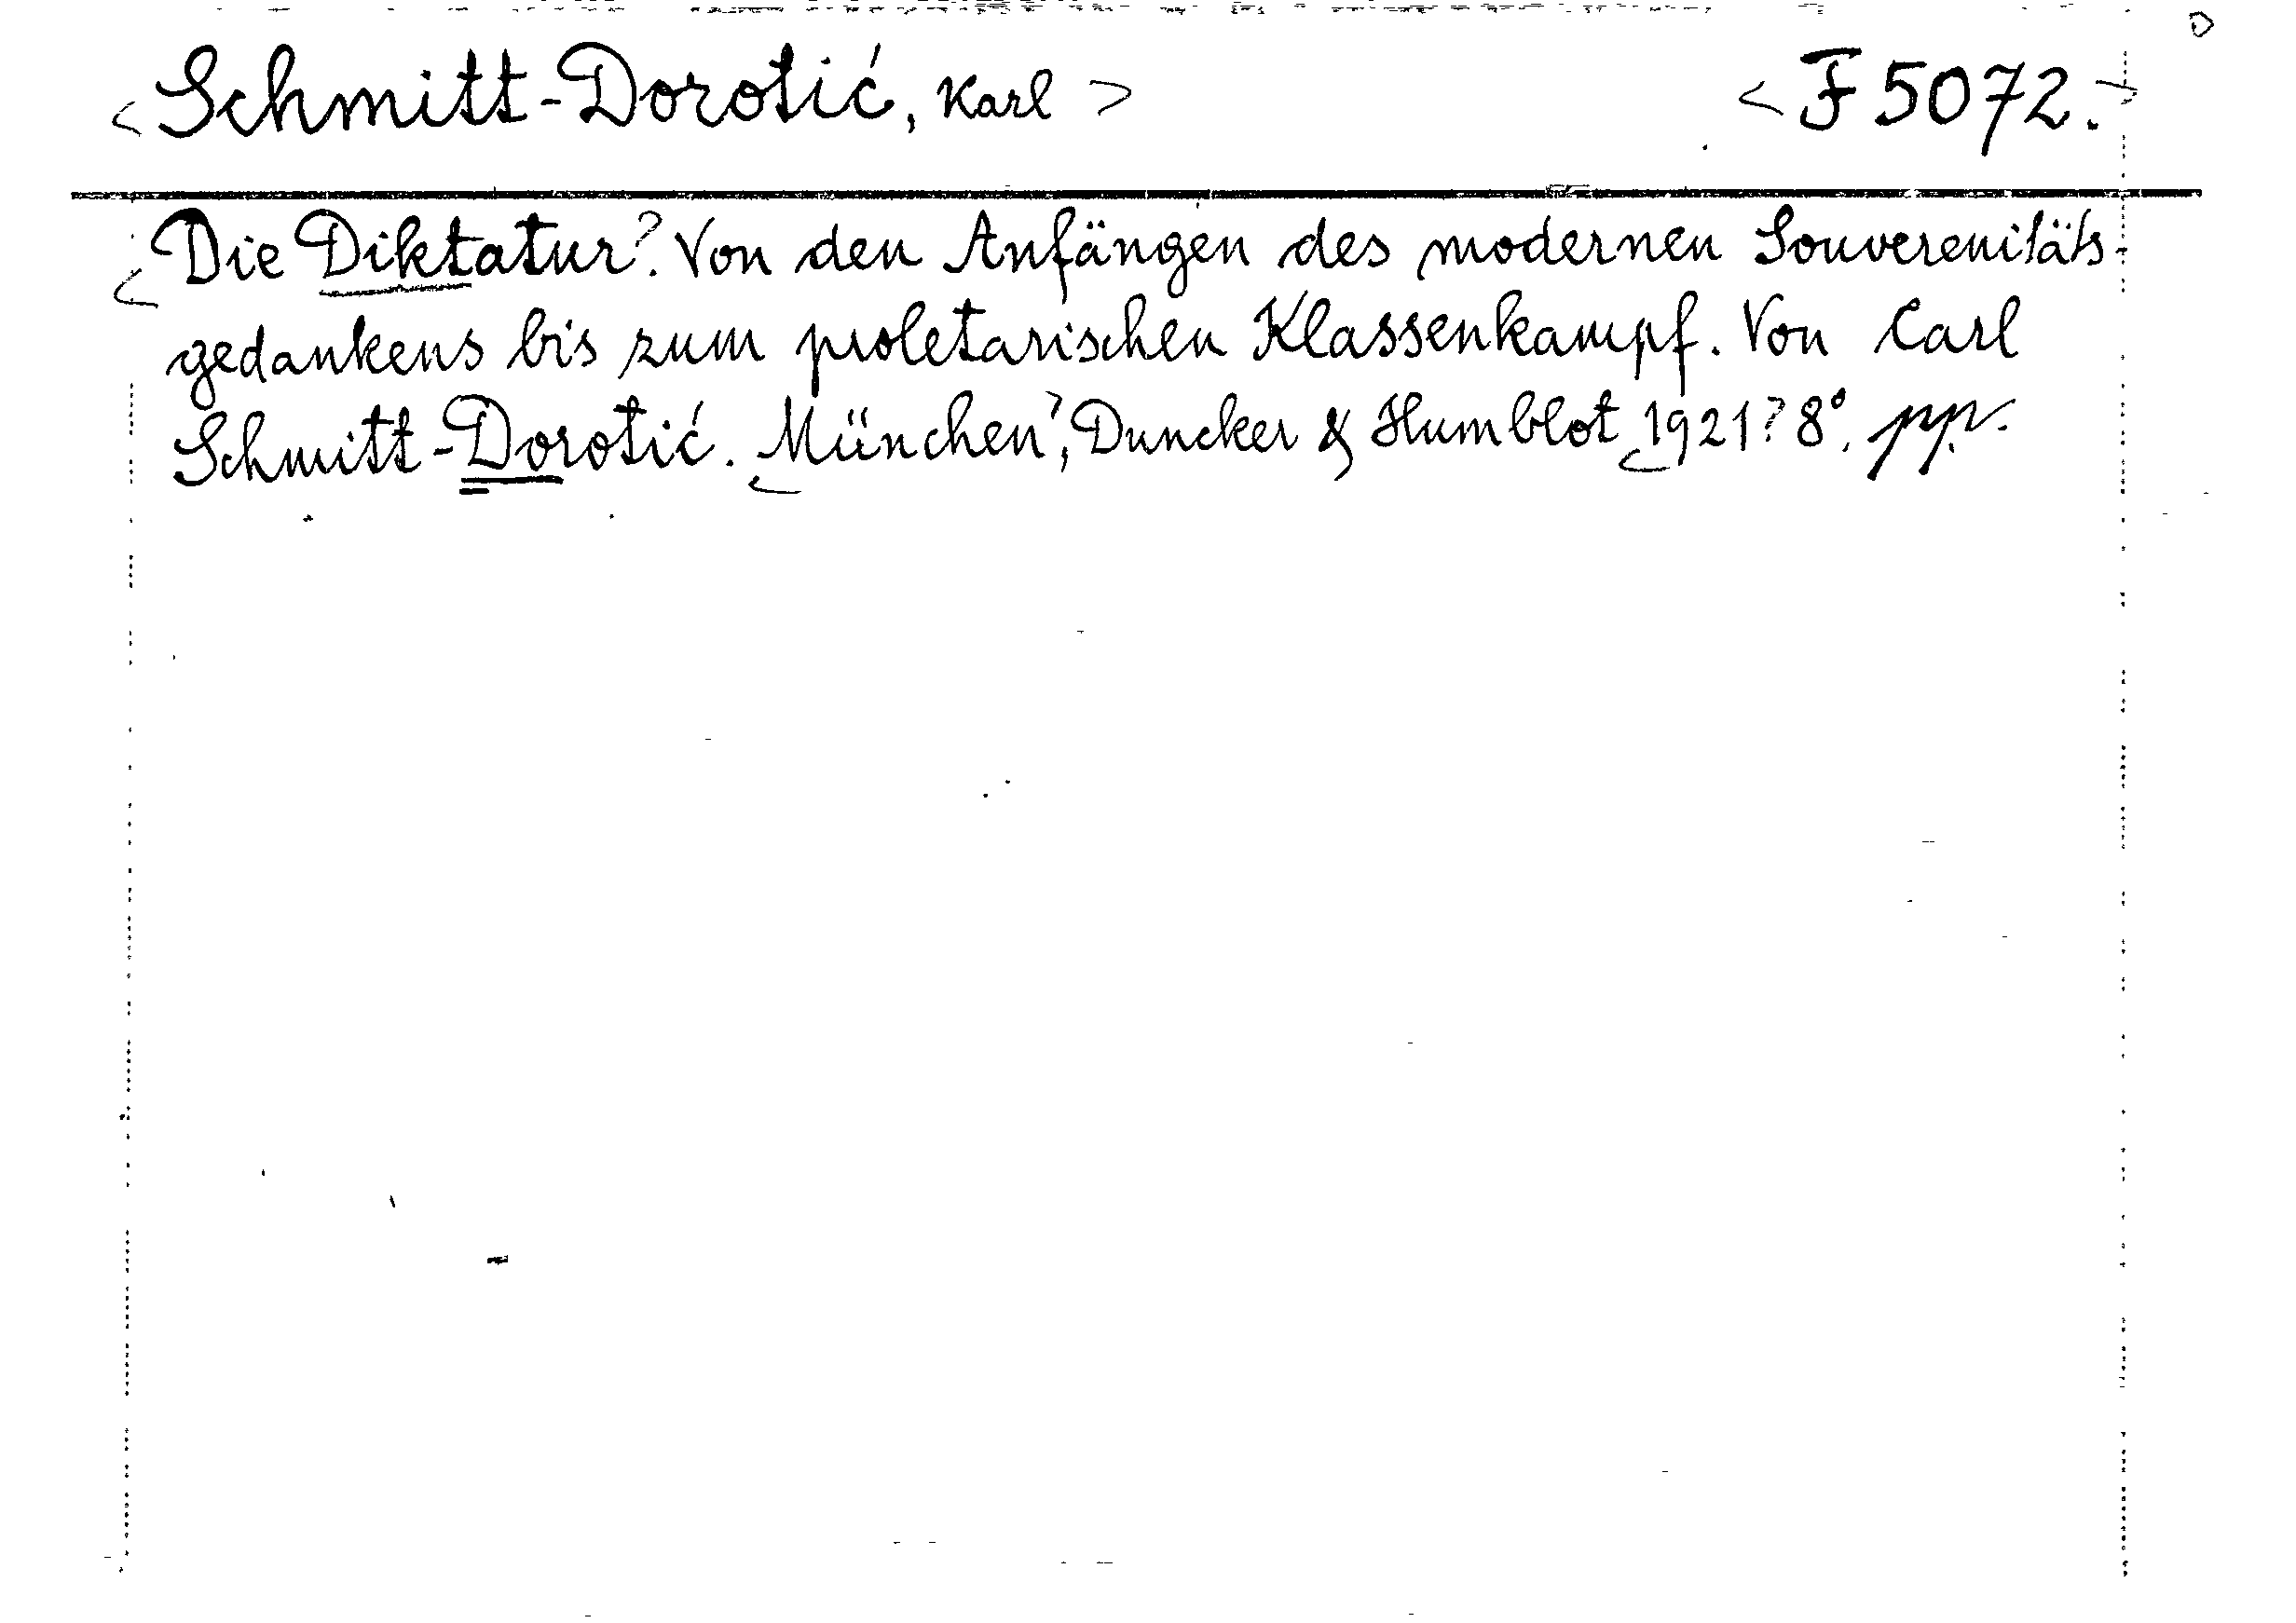 <Schmitt-Dorotić, Karl> <F 5072.>
<Die Diktatur?. Von den Anfängen des modernen Souverenitäts-
gedankens bis zum proletarischen Klassenkampf. Von Carl
Schmitt-Dorotić. München?, Duncker & Humblot 1921? 8°. pp.